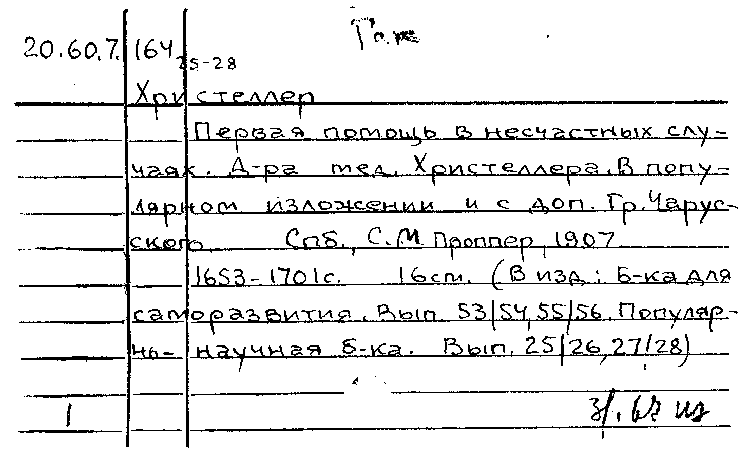 20.60.7. 164
25-28
Христеллер
Первая помощь в несчастных слу-
чаях. Д-ра мед. Христеллера. В попу-
лярном изложении и с доп. Гр. Чарус-
ского. Спб., С.М. Проппер, 1907
1653-1701 с. 16 см. (В изд.: Б-ка для
саморазвития. Вып. 53/54, 55/56. Популяр-
но-научная б-ка. Вып. 25/26, 27/28)
1